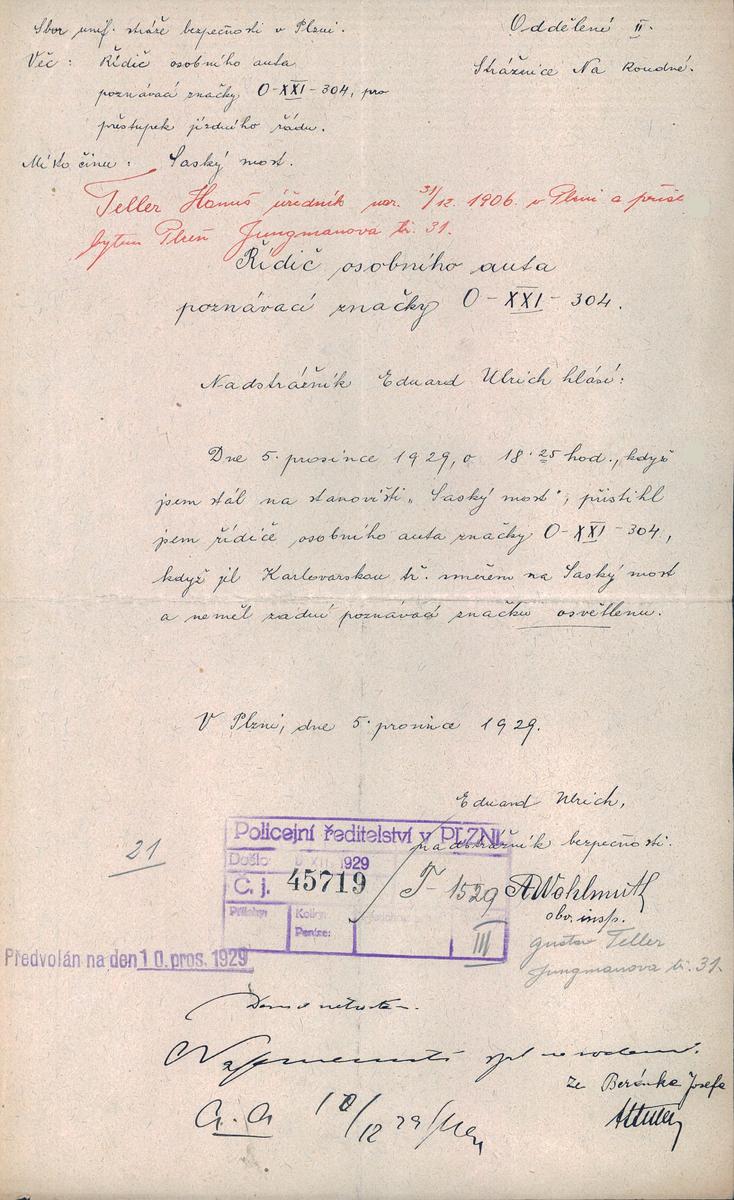 Sbor unif. stráže bezpečnosti v Plzni.
Oddělení II.
Věc: Řidič osobního auta
Strážnice Na Roudné.
poznávací značky O-XXI-304, pro
přestupek jízdního řádu.
Místo činu: Saský most.
Teller Hanuš úředník nar. 31/12. 1906. v Plzni a přísl.
bytem Plzeň Jungmanova tř. 31.
Řídič osobního auta
poznávací značky O-XXI-304.
Nadstrážník Eduard Ulrich hlásí:
Dne 5. prosince 1929, o 18.25 hod., když
jsem stál na stanovišti „Saský most", přistihl
jsem řidiče osobního auta značky O-XXI-304,
když jel Karlovarskou tř. směrem na Saský most
a neměl zadní poznávací značku osvětlenu.
V Plzni, dne 5. prosince 1929.
Eduard Ulrich,
nadstrážník bezpečnosti.
21
Policejní ředitelství v PLZNI
Došlo XII. 1929
Č. j. 45719
T-1529
AWohlmuth
obv. insp.
Přílohy:
Kolky:
Peníze:
III
Gustav Teller
Jungmanova tř. 31.
Předvolán na den 10. pros. 1929
Napomenutí
ze Beránka Josefa
a.a 10/12 29